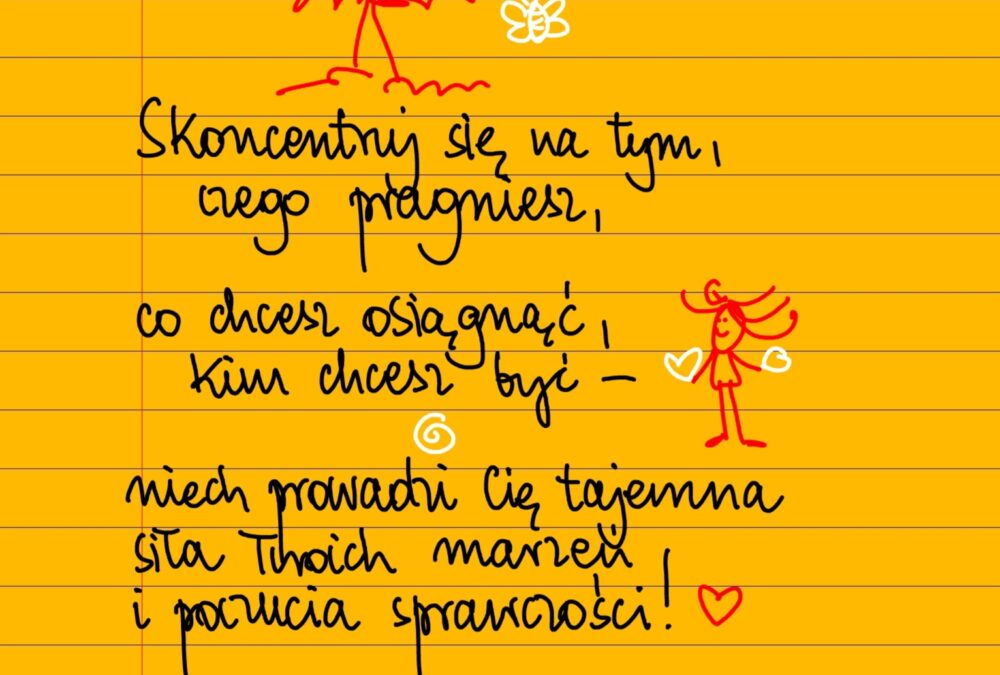 Skoncentruj się na tym,
czego pragniesz,
co chcesz osiągnąć,
kim chcesz być –
niech prowadzi Cię tajemna
siła Twoich marzeń
i poczucia sprawczości!